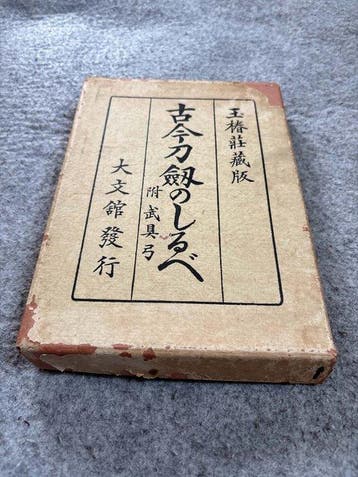 玉椿莊藏版
古今刀劔のしるべ
附武具弓
大文館發行